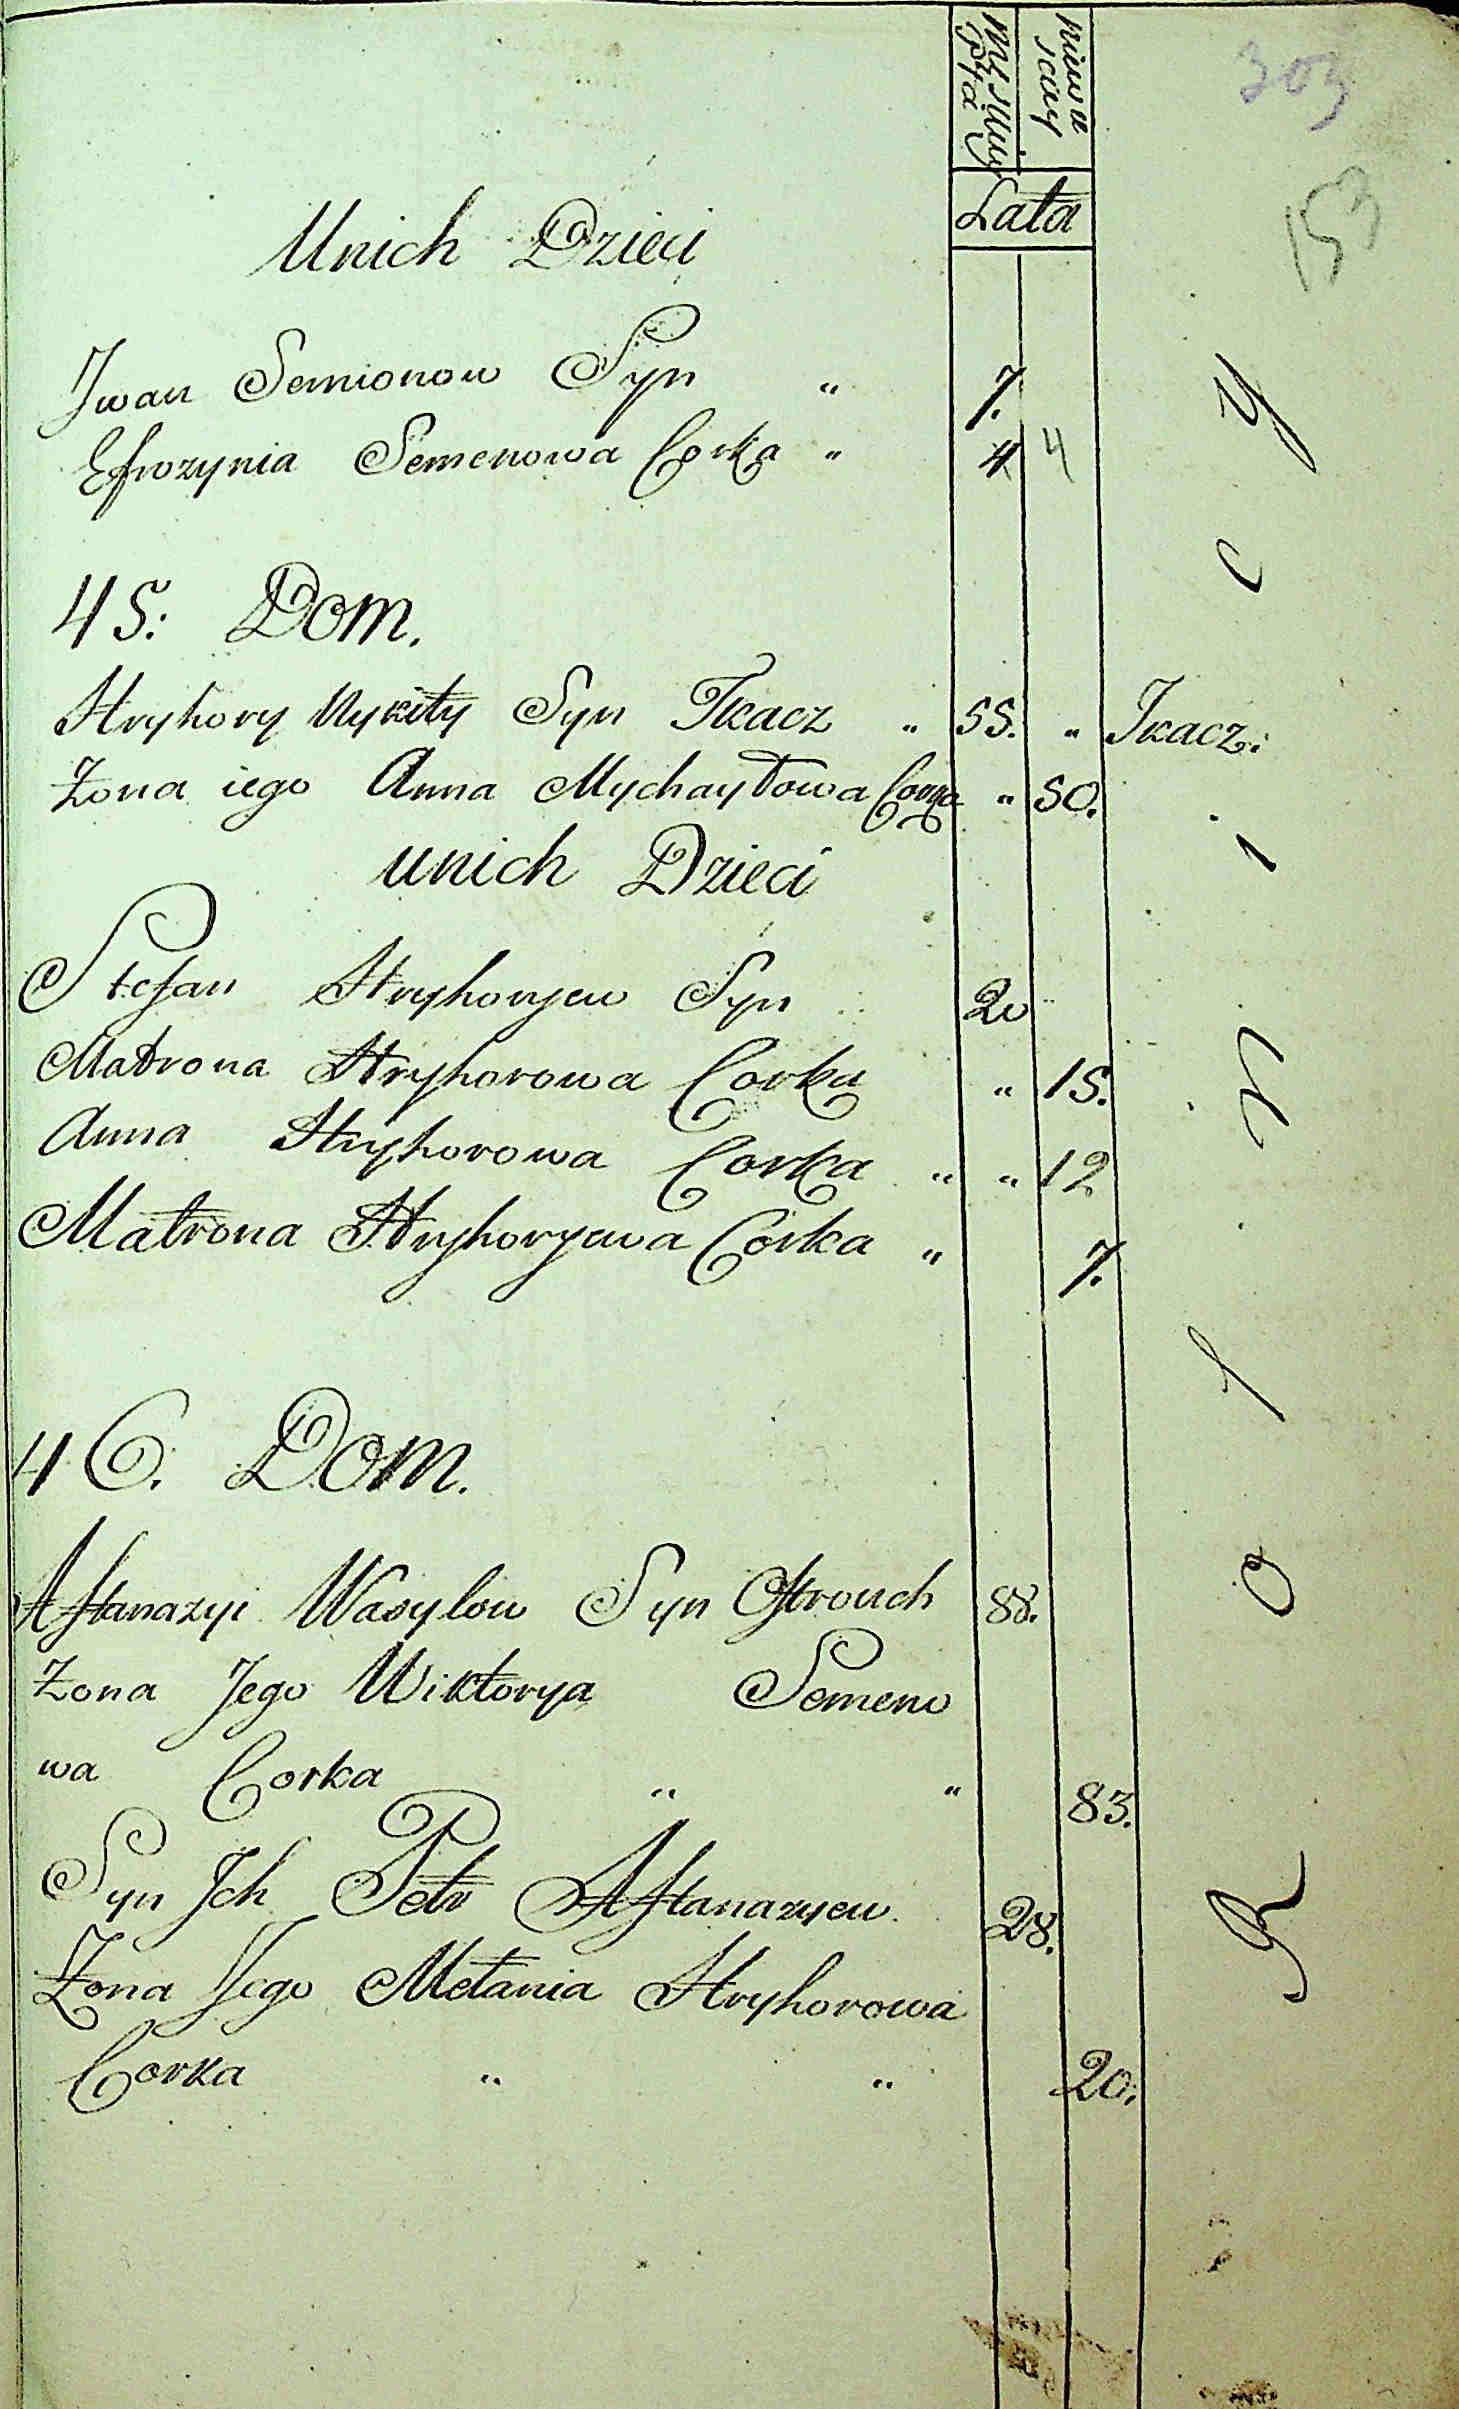 303
153
Lata
Unich Dzieci
Jwan Semionow Syn " 7.
Efrozynia Semenowa Corka " 4 4
45. Dom.
Hryhory Mykiły Syn Tkacz " 55. " Tkacz.
Zona iego Anna Mychayłowa Corka " 50.
unich Dzieci
Stefan Hryhoryew Syn 20
Matrona Hryhorowa Corka " 15.
Anna Hryhorowa Corka " " 12
Matrona Hryhoryewa Corka " 7.
46. Dom.
Aftanazyi Wasylow Syn 88.
Zona Jego Wiktorya Semeno
wa Corka " " 83.
Syn Jch Petr Aftanazyew 28.
Zona Jego Mełania Hryhorowa
Corka " " 20.
Rolnicy